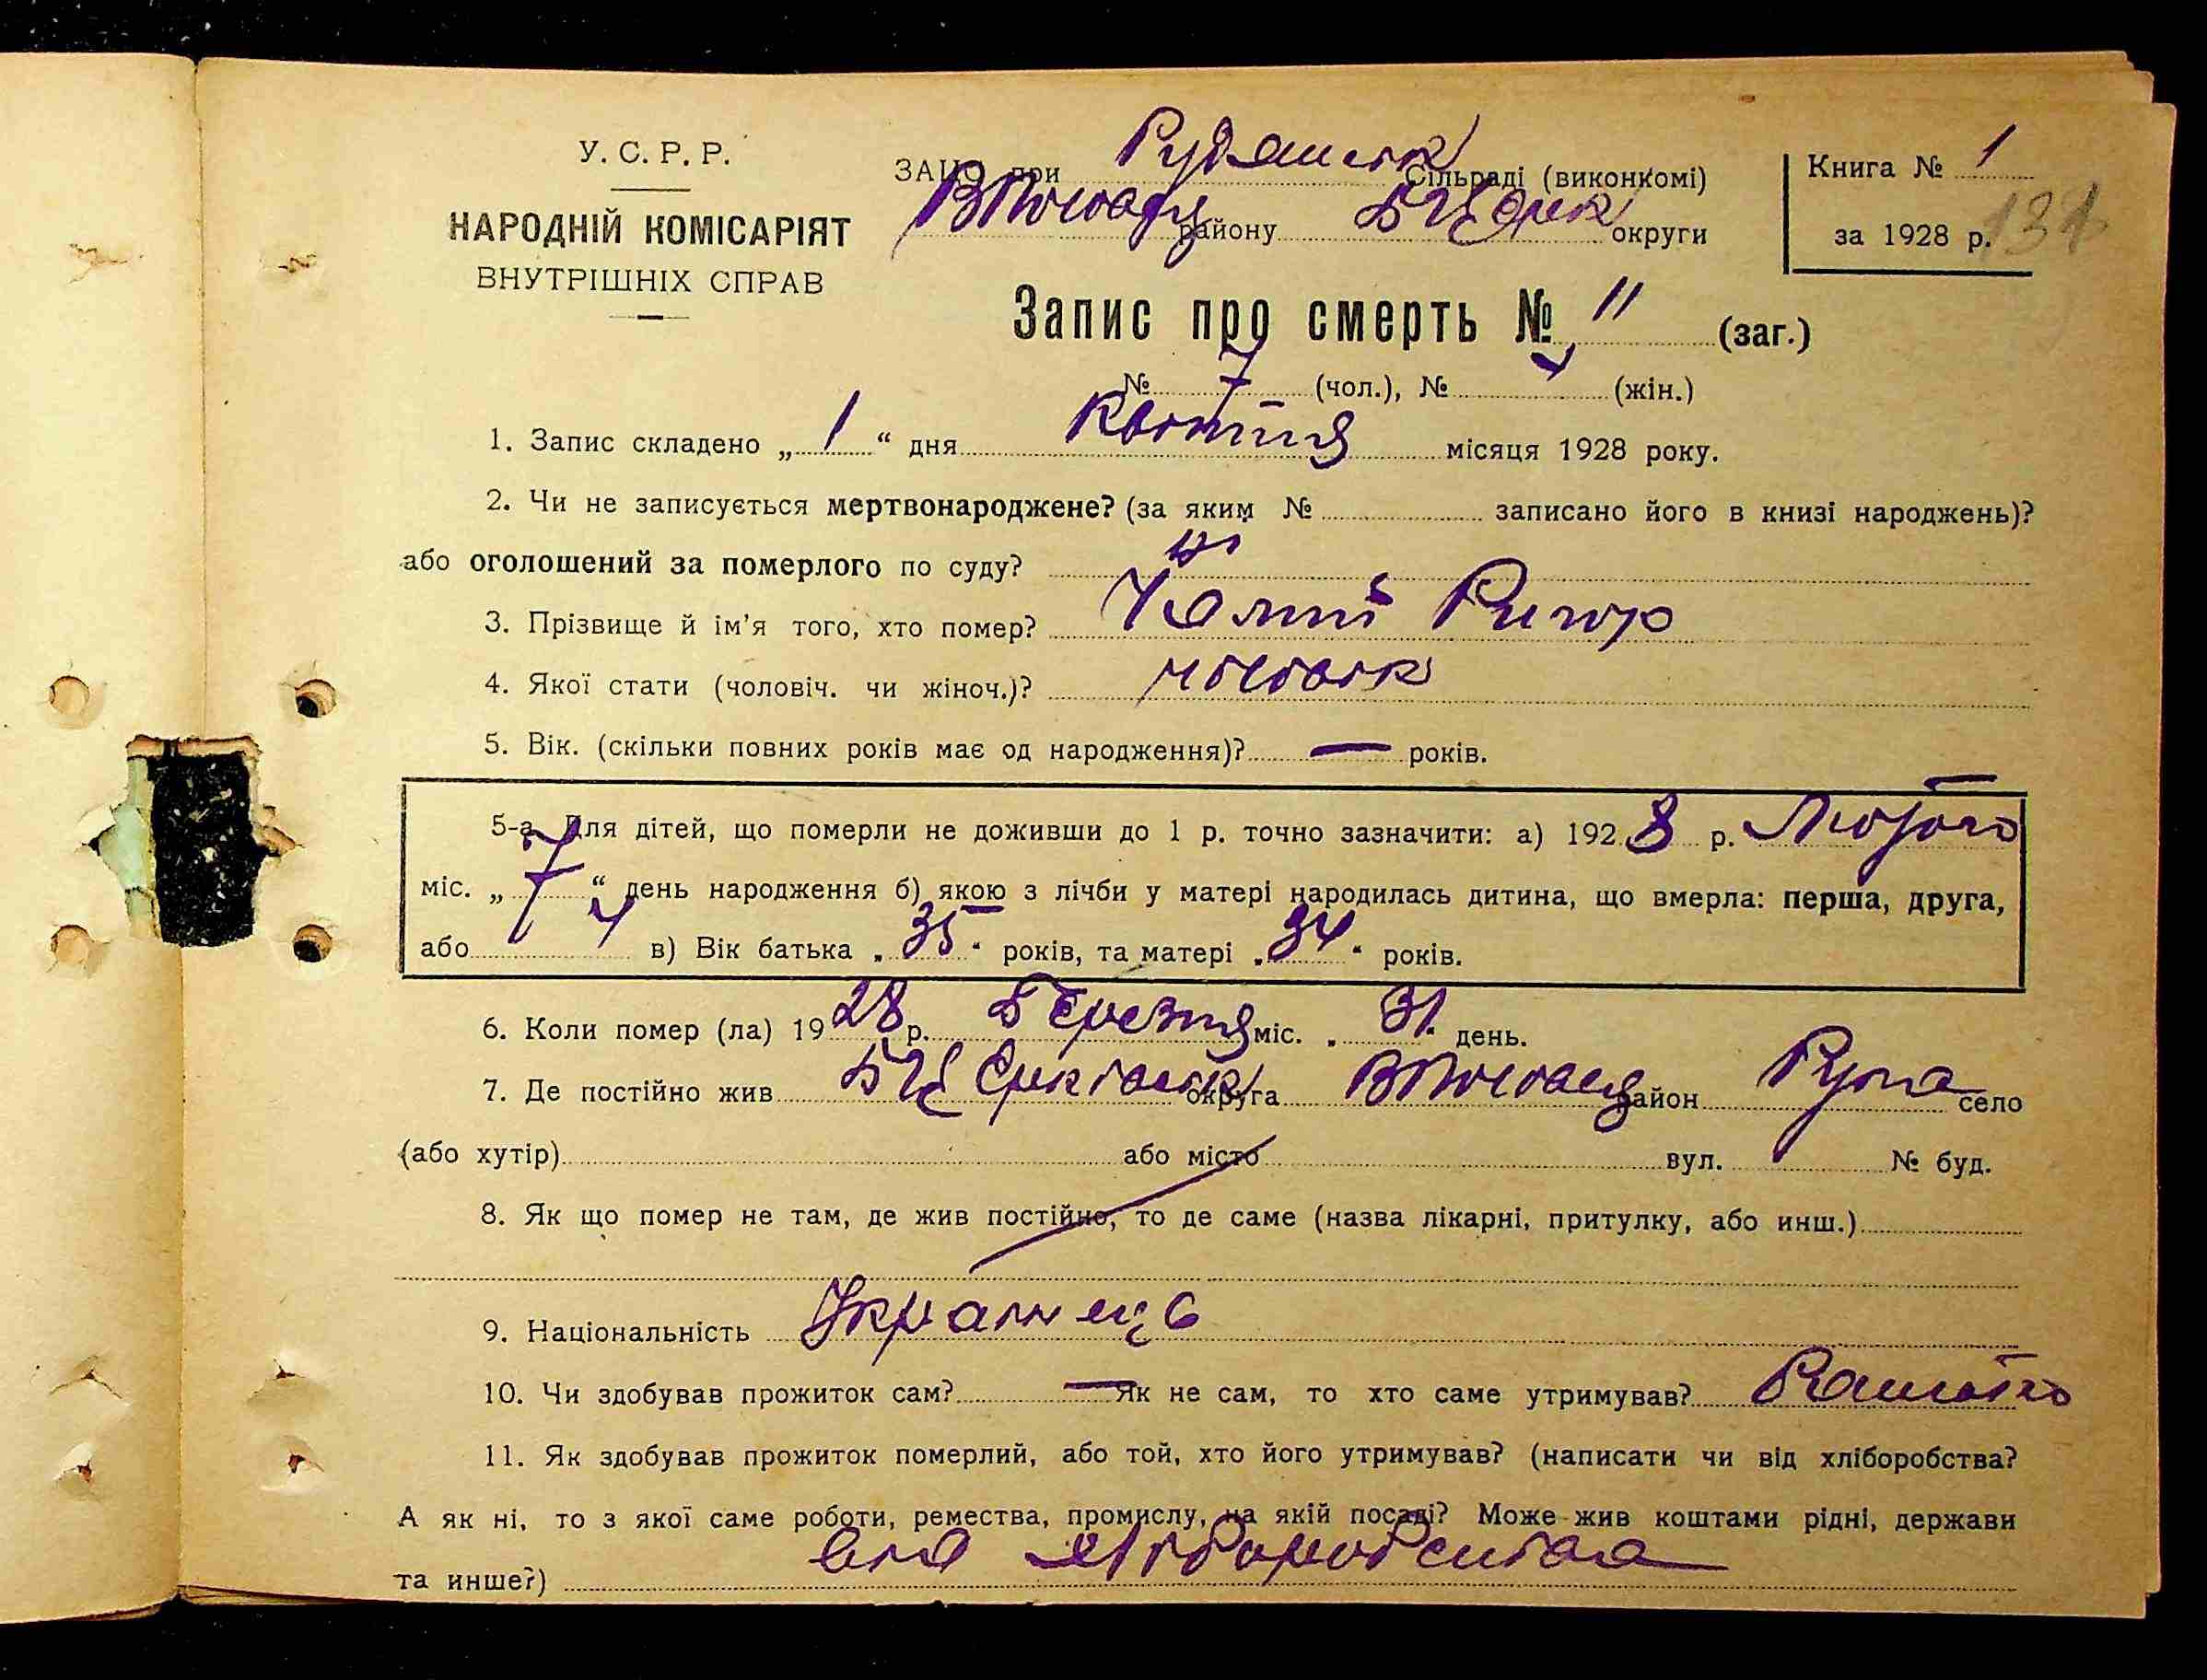 У. С. Р. Р.
НАРОДНІЙ КОМІСАРІЯТ
ВНУТРІШНІХ СПРАВ
ЗАЦС при Рудянськ Сільраді (виконкомі)
району БЦерк округи
Книга № 1
за 1928 р.
Запис про смерть № 11 (заг.)
№ 7 (чол.), № 4 (жін.)
1. Запис складено „ 1 “ дня Квітня місяця 1928 року.
2. Чи не записується мертвонароджене? (за яким № записано його в книзі народжень)?
або оголошений за померлого по суду? ні
3. Прізвище й ім’я того, хто помер?
4. Якої стати (чоловіч. чи жіноч.)? чоловік
5. Вік. (скільки повних років має од народження)? — років.
5-а. Для дітей, що померли не доживши до 1 р. точно зазначити: а) 1928 р. Лютого
міс. „ 7 “ день народження б) якою з лічби у матері народилась дитина, що вмерла: перша, друга,
або 4 в) Вік батька „ 35 “ років, та матері „ 34 “ років.
6. Коли помер (ла) 1928 р. Березня міс. „ 31 “ день.
7. Де постійно жив БЦерківськ округа район Руда село
(або хутір) або місто вул. № буд.
8. Як що помер не там, де жив постійно, то де саме (назва лікарні, притулку, або инш.)
9. Національність Українець
10. Чи здобував прожиток сам? — Як не сам, то хто саме утримував? Батько
11. Як здобував прожиток померлий, або той, хто його утримував? (написати чи від хліборобства?
А як ні, то з якої саме роботи, ремества, промислу, на якій посаді? Може жив коштами рідні, держави
та инше?) від хліборобства